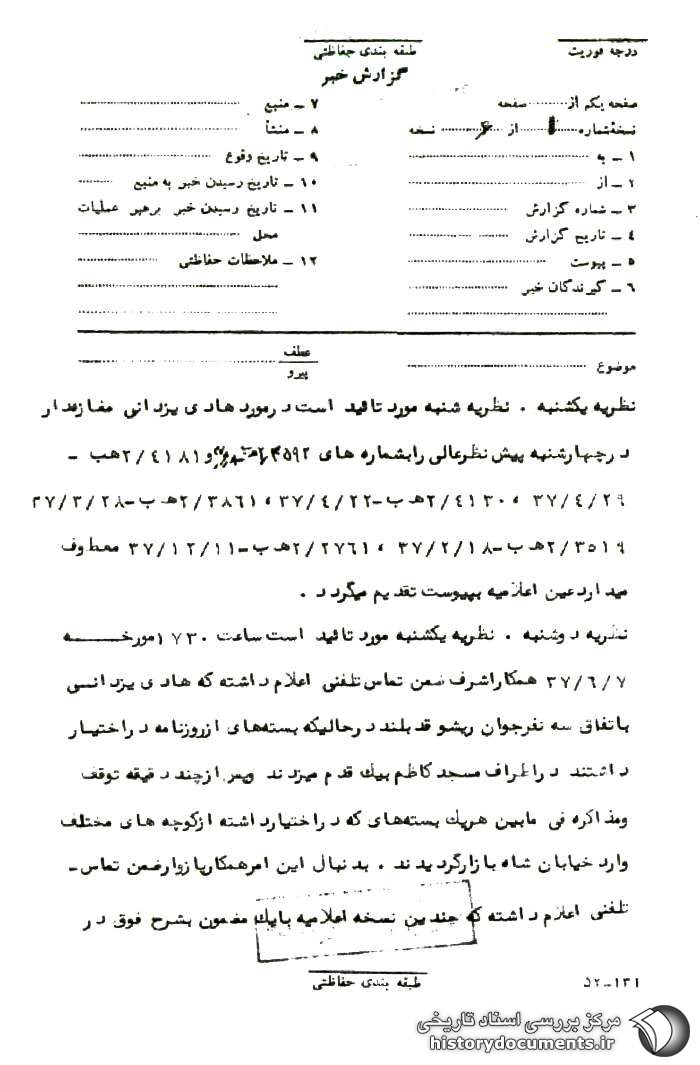 درجه فوریت
طبقه بندی حفاظتی
گزارش خبر
صفحه یکم از ............ صفحه
نسخهٔ شماره ۱ از ۶ نسخه
۱ ـ به
۲ ـ از
۳ ـ شماره گزارش
۴ ـ تاریخ گزارش
۵ ـ پیوست
۶ ـ گیرندگان خبر
۷ ـ منبع
۸ ـ منشأ
۹ ـ تاریخ وقوع
۱۰ ـ تاریخ رسیدن خبر به منبع
۱۱ ـ تاریخ رسیدن خبر برهبر عملیات
محل
۱۲ ـ ملاحظات حفاظتی
موضوع
عطف
پیرو
نظریه یکشنبه . نظریه شنبه مورد تائید است درمورد هادی یزدانی مغازه‌دار
درچهارشنبه پیش نظرعالی رابشماره های و۲/۴۱۸۱هـ ب -
۳۷/۴/۲۹ ، ۲/۴۱۳۰هـ ب-۳۷/۴/۲۲ ، ۲/۳۸۶۱هـ ب-۳۷/۳/۲۸
۲/۳۵۱۹هـ ب-۳۷/۲/۱۸ ، ۲/۲۷۶۱هـ ب-۳۷/۱۲/۱۱ معطوف
میدارد عین اعلامیه بپیوست تقدیم میگردد .
نظریه دوشنبه . نظریه یکشنبه مورد تائید است ساعت ۱۷۳۰ مورخـــــه
۳۷/۶/۷ همکاراشرف ضمن تماس تلفنی اعلام داشته که هادی یزدانسی
باتفاق سه نفرجوان ریشو قدبلند درحالیکه بسته‌های ازروزنامه دراختیـار
داشتند دراطراف مسجد کاظم بیك قدم میزدند وپس ازچند دقیقه توقف
ومذاکره فی مابین هریك بسته‌های که دراختیارداشته ازکوچه های مختلف
وارد خیابان شاه بازارگردیدند . بدنبال این امرهمکاربازوارضمن تماس-
تلفنی اعلام داشته که چندین نسخه اعلامیه بایك مضمون بشرح فوق در
طبقه بندی حفاظتی
۵۲-۱۳۱
مرکز بررسی اسناد تاریخی
historydocuments.ir